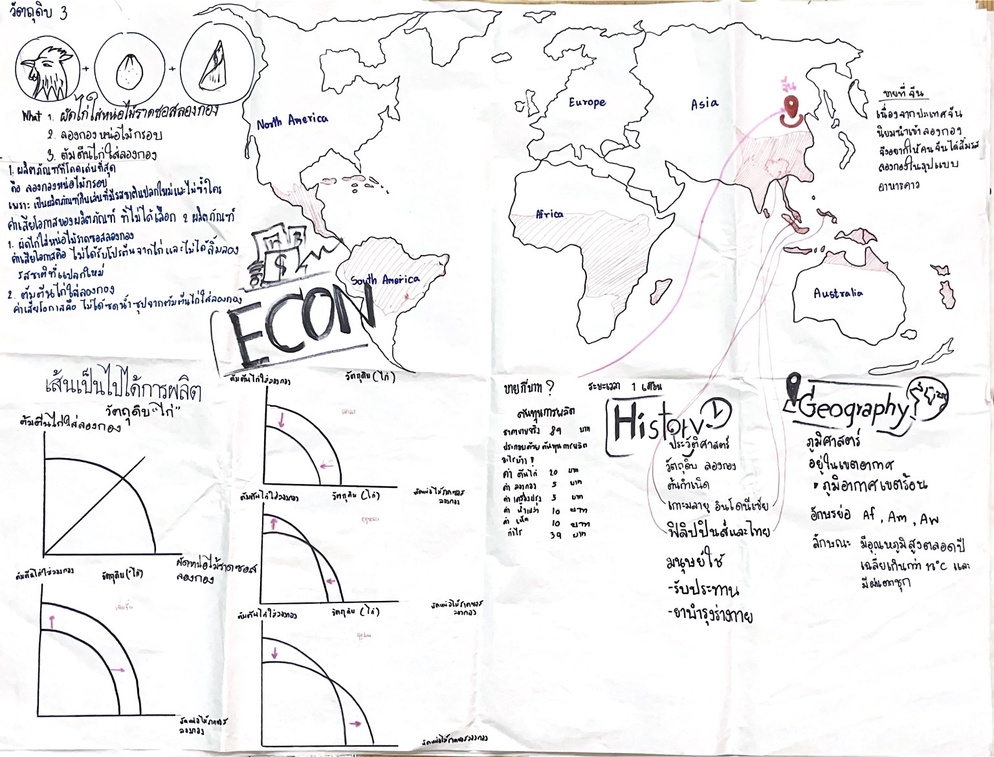 วัตถุดิบ 3
What 1. ผัดไก่ใส่หน่อไม้ราดซอสลองกอง
2. ลองกองหน่อไม้กรอบ
3. ต้มตีนไก่ใส่ลองกอง
1. ผลิตภัณฑ์ที่โดดเด่นที่สุด
คือ ลองกองหน่อไม้กรอบ
เพราะ เป็นผลิตภัณฑ์กินเล่นที่มีรสชาติแปลกใหม่และไม่ซ้ำใคร
ค่าเสียโอกาสของผลิตภัณฑ์ ที่ไม่ได้เลือก 2 ผลิตภัณฑ์
1. ผัดไก่ใส่หน่อไม้ราดซอสลองกอง
ค่าเสียโอกาสคือ ไม่ได้รับโปรตีนจากไก่และไม่ได้ลิ้มลอง
รสชาติที่แปลกใหม่
2. ต้มตีนไก่ใส่ลองกอง
ค่าเสียโอกาสคือ ไม่ได้ซดน้ำซุปจากต้มตีนไก่ใส่ลองกอง
ECON
$
North America
South America
Europe
Africa
Asia
Australia
จีน
ขายที่ จีน
เนื่องจากประเทศจีน
นิยมนำเข้าลองกอง
จึงอยากให้คนจีนได้ลิ้มรส
ลองกองในรูปแบบ
อาหารคาว
เส้นเป็นไปได้การผลิต
วัตถุดิบ "ไก่"
ต้มตีนไก่ใส่ลองกอง
ผัดหน่อไม้ราดซอส
ลองกอง
ต้มตีนไก่ใส่ลองกอง
วัตถุดิบ (ไก่)
ต้มตีนไก่ใส่ลองกอง
วัตถุดิบ (ไก่)
ต้มตีนไก่ใส่ลองกอง
วัตถุดิบ (ไก่)
ต้มตีนไก่ใส่ลองกอง
วัตถุดิบ (ไก่)
ขายกี่บาท ?
ระยะเวลา 1 เดือน
ต้นทุนการผลิต
89 บาท
ค่า ตีนไก่ 20 บาท
ค่า ลองกอง 5 บาท
ค่า เครื่องปรุง 5 บาท
10 บาท
10 บาท
กำไร 39 บาท
History
ประวัติศาสตร์
วัตถุดิบ ลองกอง
ต้นกำเนิด
เกาะมลายู อินโดนีเซีย
ฟิลิปปินส์และไทย
มนุษย์ใช้
-รับประทาน
-ยาบำรุงร่างกาย
Geography
ภูมิศาสตร์
อยู่ในเขตอากาศ
• ภูมิอากาศเขตร้อน
อักษรย่อ Af, Am, Aw
ลักษณะ มีอุณหภูมิสูงตลอดปี
เฉลี่ยเกินกว่า 18°C และ
มีฝนตกชุก